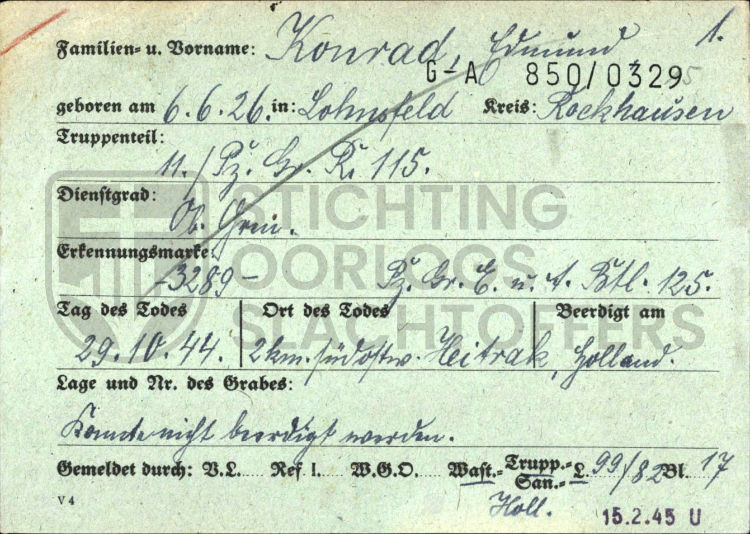 Familien- u. Vorname: Konrad, Edmund 1.
G-A 850/0329
geboren am 6.6.26. in: Lohnsfeld Kreis: Rockhausen
Truppenteil:
11./Pz. Gr. R. 115.
Dienstgrad:
Ob. Gren.
Erkennungsmarke:
-3289- Pz. Gr. E. u. A. Btl. 125.
Tag des Todes Ort des Todes Beerdigt am
29.10.44. 2 km. südostw. Heitrak, Holland.
Lage und Nr. des Grabes:
Konnte nicht beerdigt werden.
Gemeldet durch: V.L. Ref I. W.G.O. Wast.- Trupp.- San.- L. 99/82 Bl. 17
Holl. 15.2.45 U
V 4
STICHTING
OORLOGS
SLACHTOFFERS